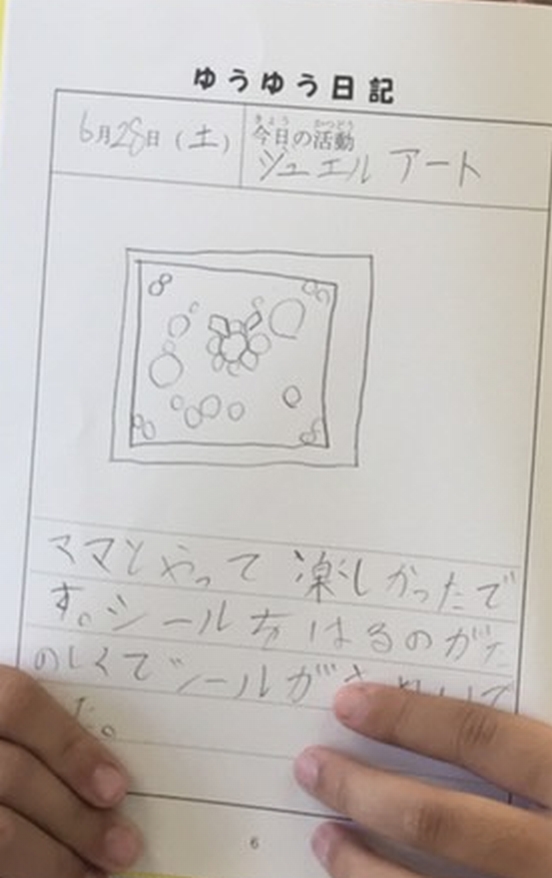 ゆうゆう日記
6月28日（土）
きょう かつどう
今日の活動
ジュエル アート
ママとやって 楽しかったで
す。シールをはるのがた
のしくてシールが
た。
6